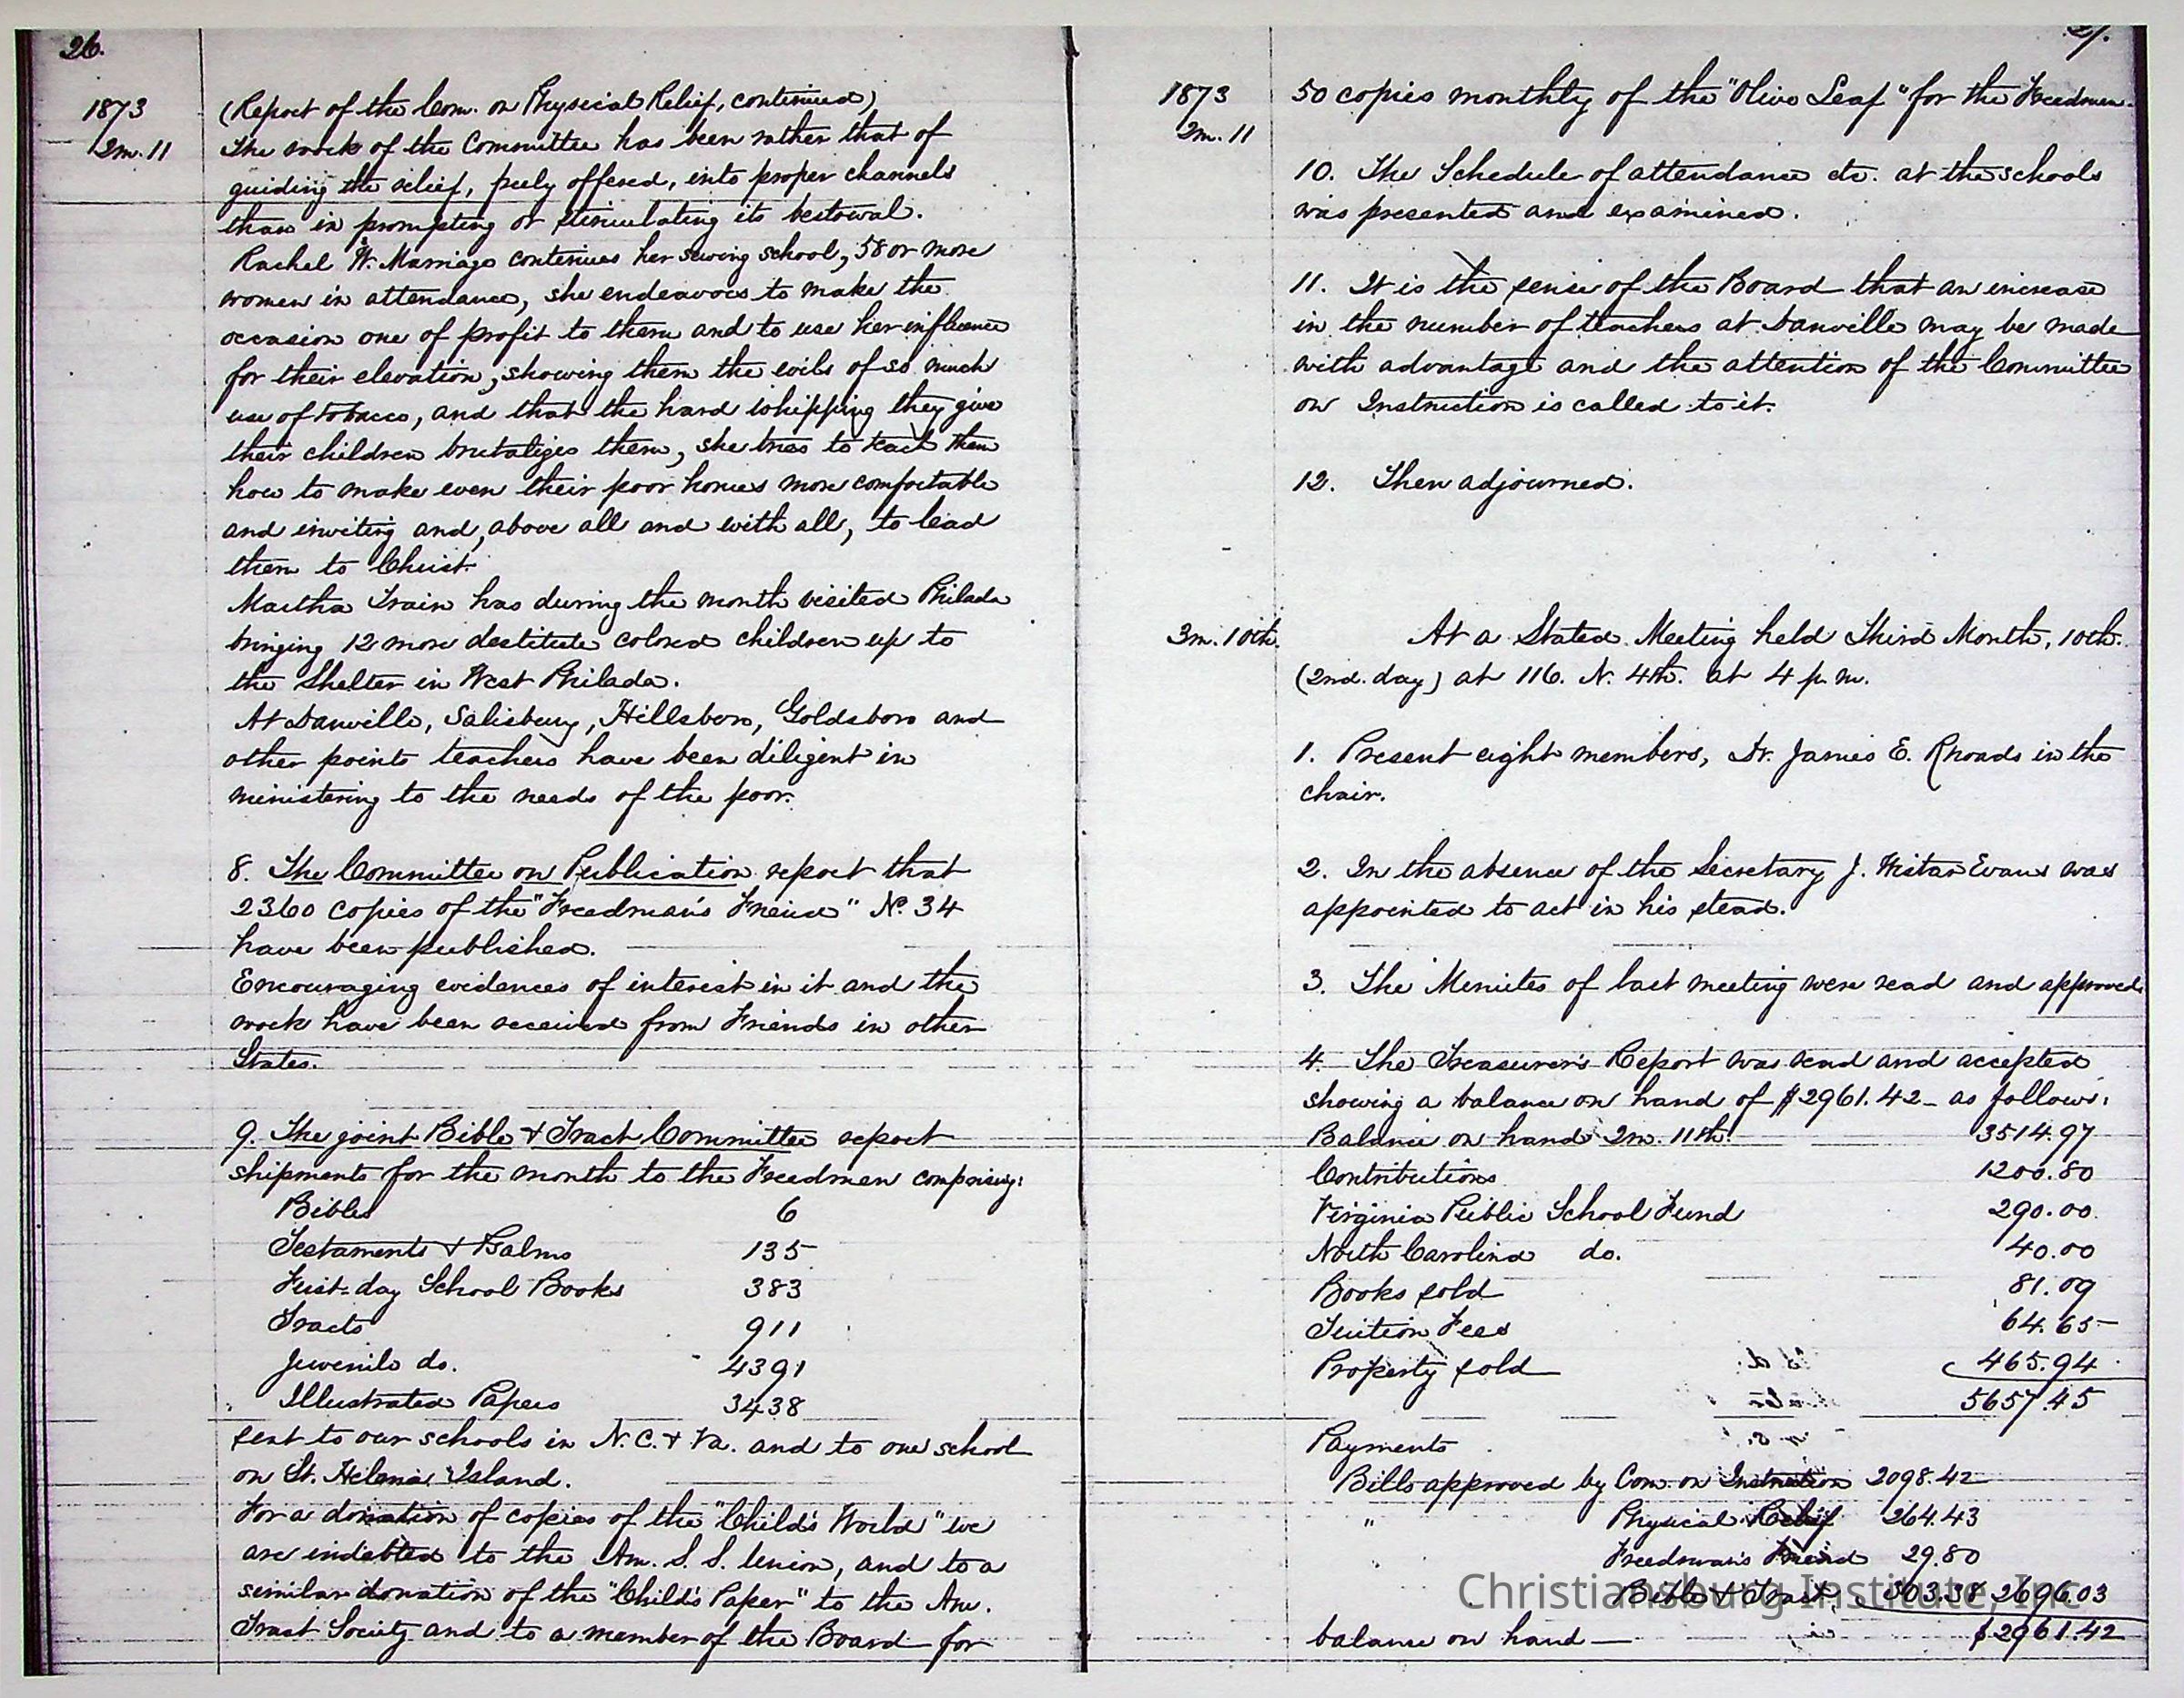 26.
1873
2m. 11
(Report of the Com. on Physical Relief, continued)
The work of the Committee has been rather that of
guiding the relief, freely offered, into proper channels
than in prompting or stimulating its bestowal.
Rachel W. Marriage continues her sewing school, 58 or more
women in attendance, she endeavors to make the
occasion one of profit to them and to use her influence
for their elevation, showing them the evils of so much
use of tobacco, and that the hard whipping they give
their children brutalizes them, she tries to teach them
how to make even their poor homes more comfortable
and inviting and, above all and with all, to lead
them to Christ.
Martha Train has during the month visited Philada
bringing 12 more destitute colored children up to
the Shelter in West Philada.
At Danville, Salisbury, Hillsboro, Goldsboro and
other points teachers have been diligent in
ministering to the needs of the poor.
8. The Committee on Publication report that
2360 copies of the "Freedman's Friend" No. 34
have been published.
Encouraging evidences of interest in it and the
work have been received from Friends in other
States.
9. The joint Bible & Tract Committee report
shipments for the month to the Freedmen comprising:
Bibles 6
Testaments & Psalms 135
First-day School Books 383
Tracts 911
Juvenile do. 4391
Illustrated Papers 3438
sent to our schools in N.C. & Va. and to one school
on St. Helena Island.
For a donation of copies of the "Child's World" we
are indebted to the Am. S. S. Union, and to a
similar donation of the "Child's Paper" to the Am.
Tract Society and to a member of the Board for
27.
1873
2m. 11
50 copies monthly of the "Olive Leaf" for the Freedmen.
10. The Schedule of attendance etc. at the schools
was presented and examined.
11. It is the sense of the Board that an increase
in the number of teachers at Danville may be made
with advantage and the attention of the Committee
on Instruction is called to it.
12. Then adjourned.
3m. 10th.
At a Stated Meeting held Third Month, 10th.
(2nd. day) at 116. N. 4th. at 4 p.m.
1. Present eight members, Dr. James E. Rhoads in the
chair.
2. In the absence of the Secretary J. Wistar Evans was
appointed to act in his stead.
3. The Minutes of last meeting were read and approved.
4. The Treasurer's Report was read and accepted
showing a balance on hand of $2961.42 as follows:
Balance on hand 2m. 11th. 3514.97
Contributions 1200.80
Virginia Public School Fund 290.00
North Carolina do. 40.00
Books sold 81.09
Tuition Fees 64.65
Property sold 465.94
5657.45
Payments
Bills approved by Com. on Instruction 2098.42
" Physical Relief 264.43
Freedman's Friend 29.80
Bible & Tract 303.38 2696.03
balance on hand — $2961.42
Christiansburg Institute, Inc